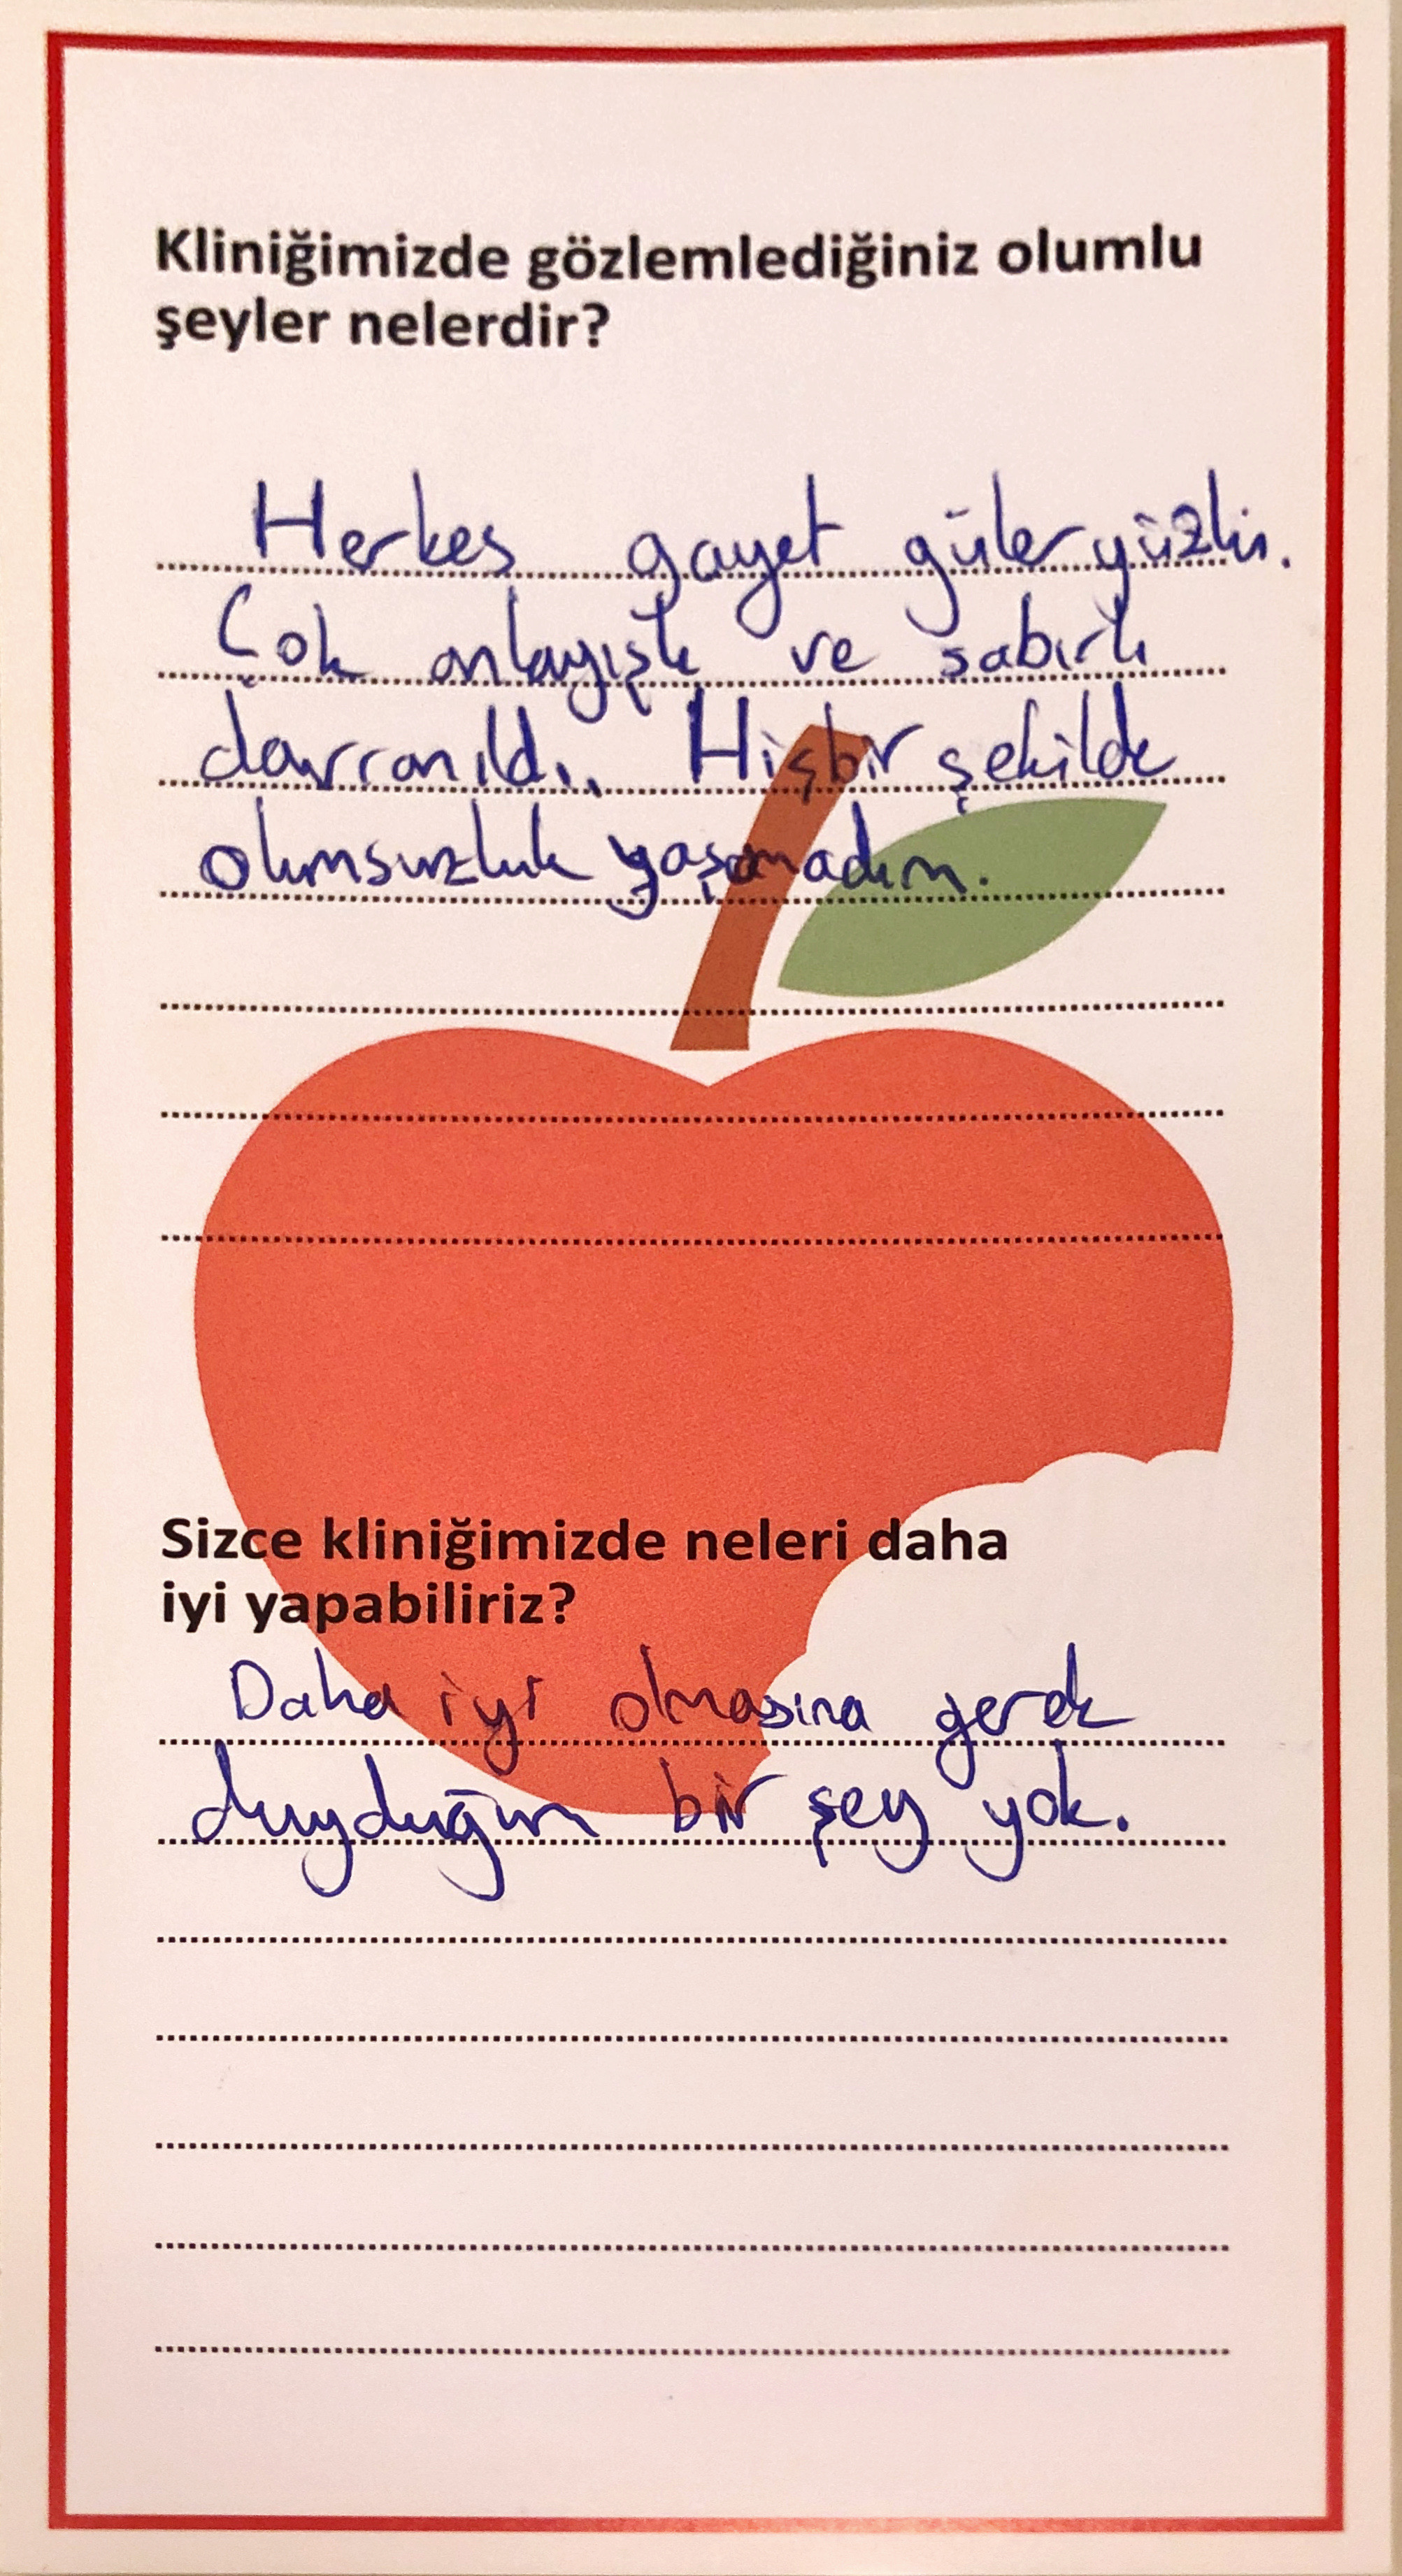 Kliniğimizde gözlemlediğiniz olumlu
şeyler nelerdir?
Herkes gayet güler yüzlü.
Çok anlayışlı ve sabırlı
davranıldı. Hiçbir şekilde
olumsuzluk yaşamadım.
Sizce kliniğimizde neleri daha
iyi yapabiliriz?
Daha iyi olmasına gerek
duyduğum bir şey yok.